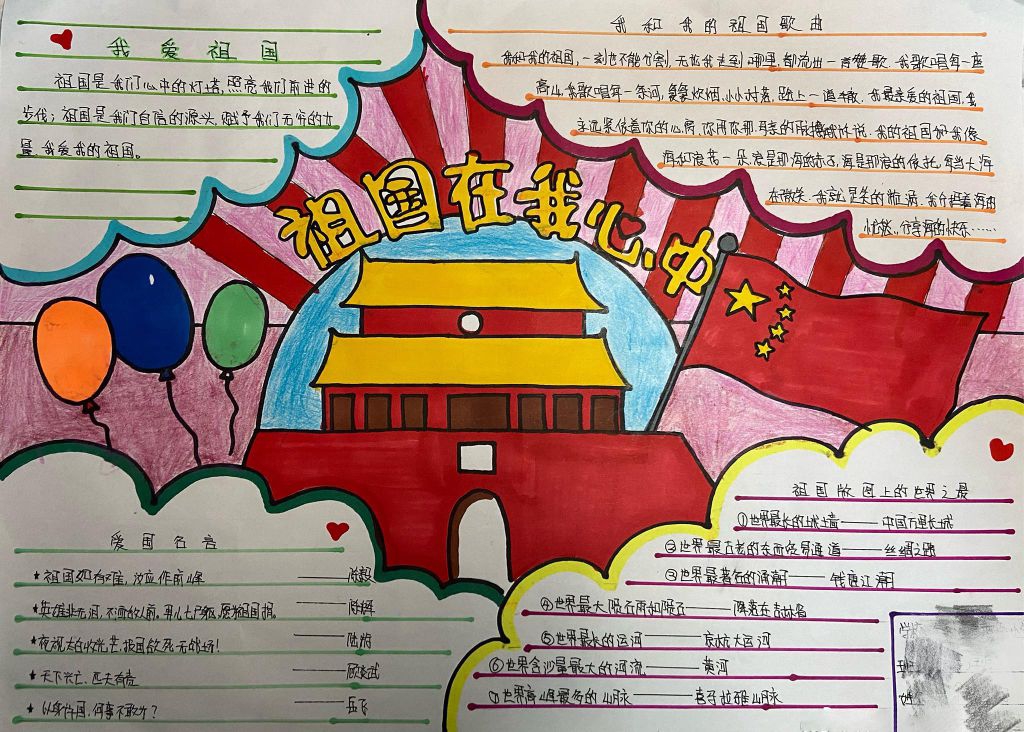 我爱祖国
祖国是我们心中的灯塔,照亮我们前进的
步伐;祖国是我们自信的源头,赋予我们无穷的力
量,我爱我的祖国。
我和我的祖国歌曲
我和我的祖国,一刻也不能分割,无论我走到哪里,都流出一首赞歌.我歌唱每一座
高山,我歌唱每一条河,袅袅炊烟,小小村落,路上一道辙.我最亲爱的祖国,我
永远紧依着你的心窝,你用你那母亲的脉搏和我诉说.我的祖国和我像
海和浪花一朵,浪是那海的赤子,海是那浪的依托,每当大海
在微笑,我就是笑的旋涡,我分担着海的
忧愁,分享海的快乐……
祖国在我心中
爱国名言
★祖国如有难,汝应作前峰——陈毅
★英雄非无泪,不洒敌人前。男儿七尺躯,愿为祖国捐。——陈辉
★夜视太白收光芒,报国欲死无战场!——陆游
★天下兴亡、匹夫有责——顾炎武
★以身许国,何事不敢为?——岳飞
祖国版图上的世界之最
①世界最长的城墙——中国万里长城
②世界最古老的东西贸易通道——丝绸之路
③世界最著名的涌潮——钱唐江潮
④世界最大陨石雨和陨石——降落在吉林省
⑤世界最长的运河——京杭大运河
⑥世界含沙量最大的河流——黄河
⑦世界高峰最多的山脉——喜马拉雅山脉